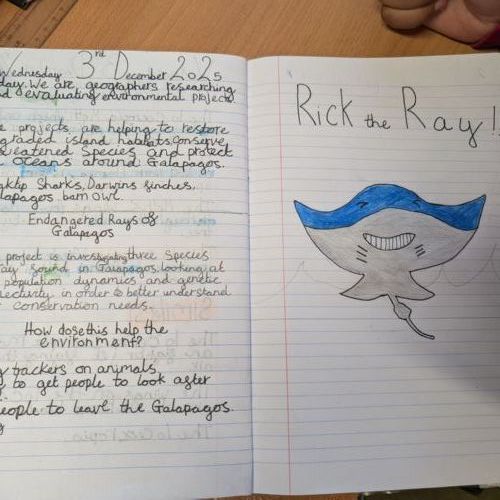 Wednesday 3rd December 2025
day. We are geographers researching
nd evaluating environmental projects
e projects are helping to restore
graded island habitats, conserve
reatened species and protect
oceans around Galapagos.
Sharks, Darwins finches,
lapagos barn owl.
Endangered Rays of
Galapagos
project is investigating three species
ray sound in Galapagos, looking at
population dynamics and genetic
nectivity in order to better understand
conservation needs.
How dose this help the
environment?
trackers on animals
to get people to look after
people to leave the Galapagos.
Rick the Ray!!